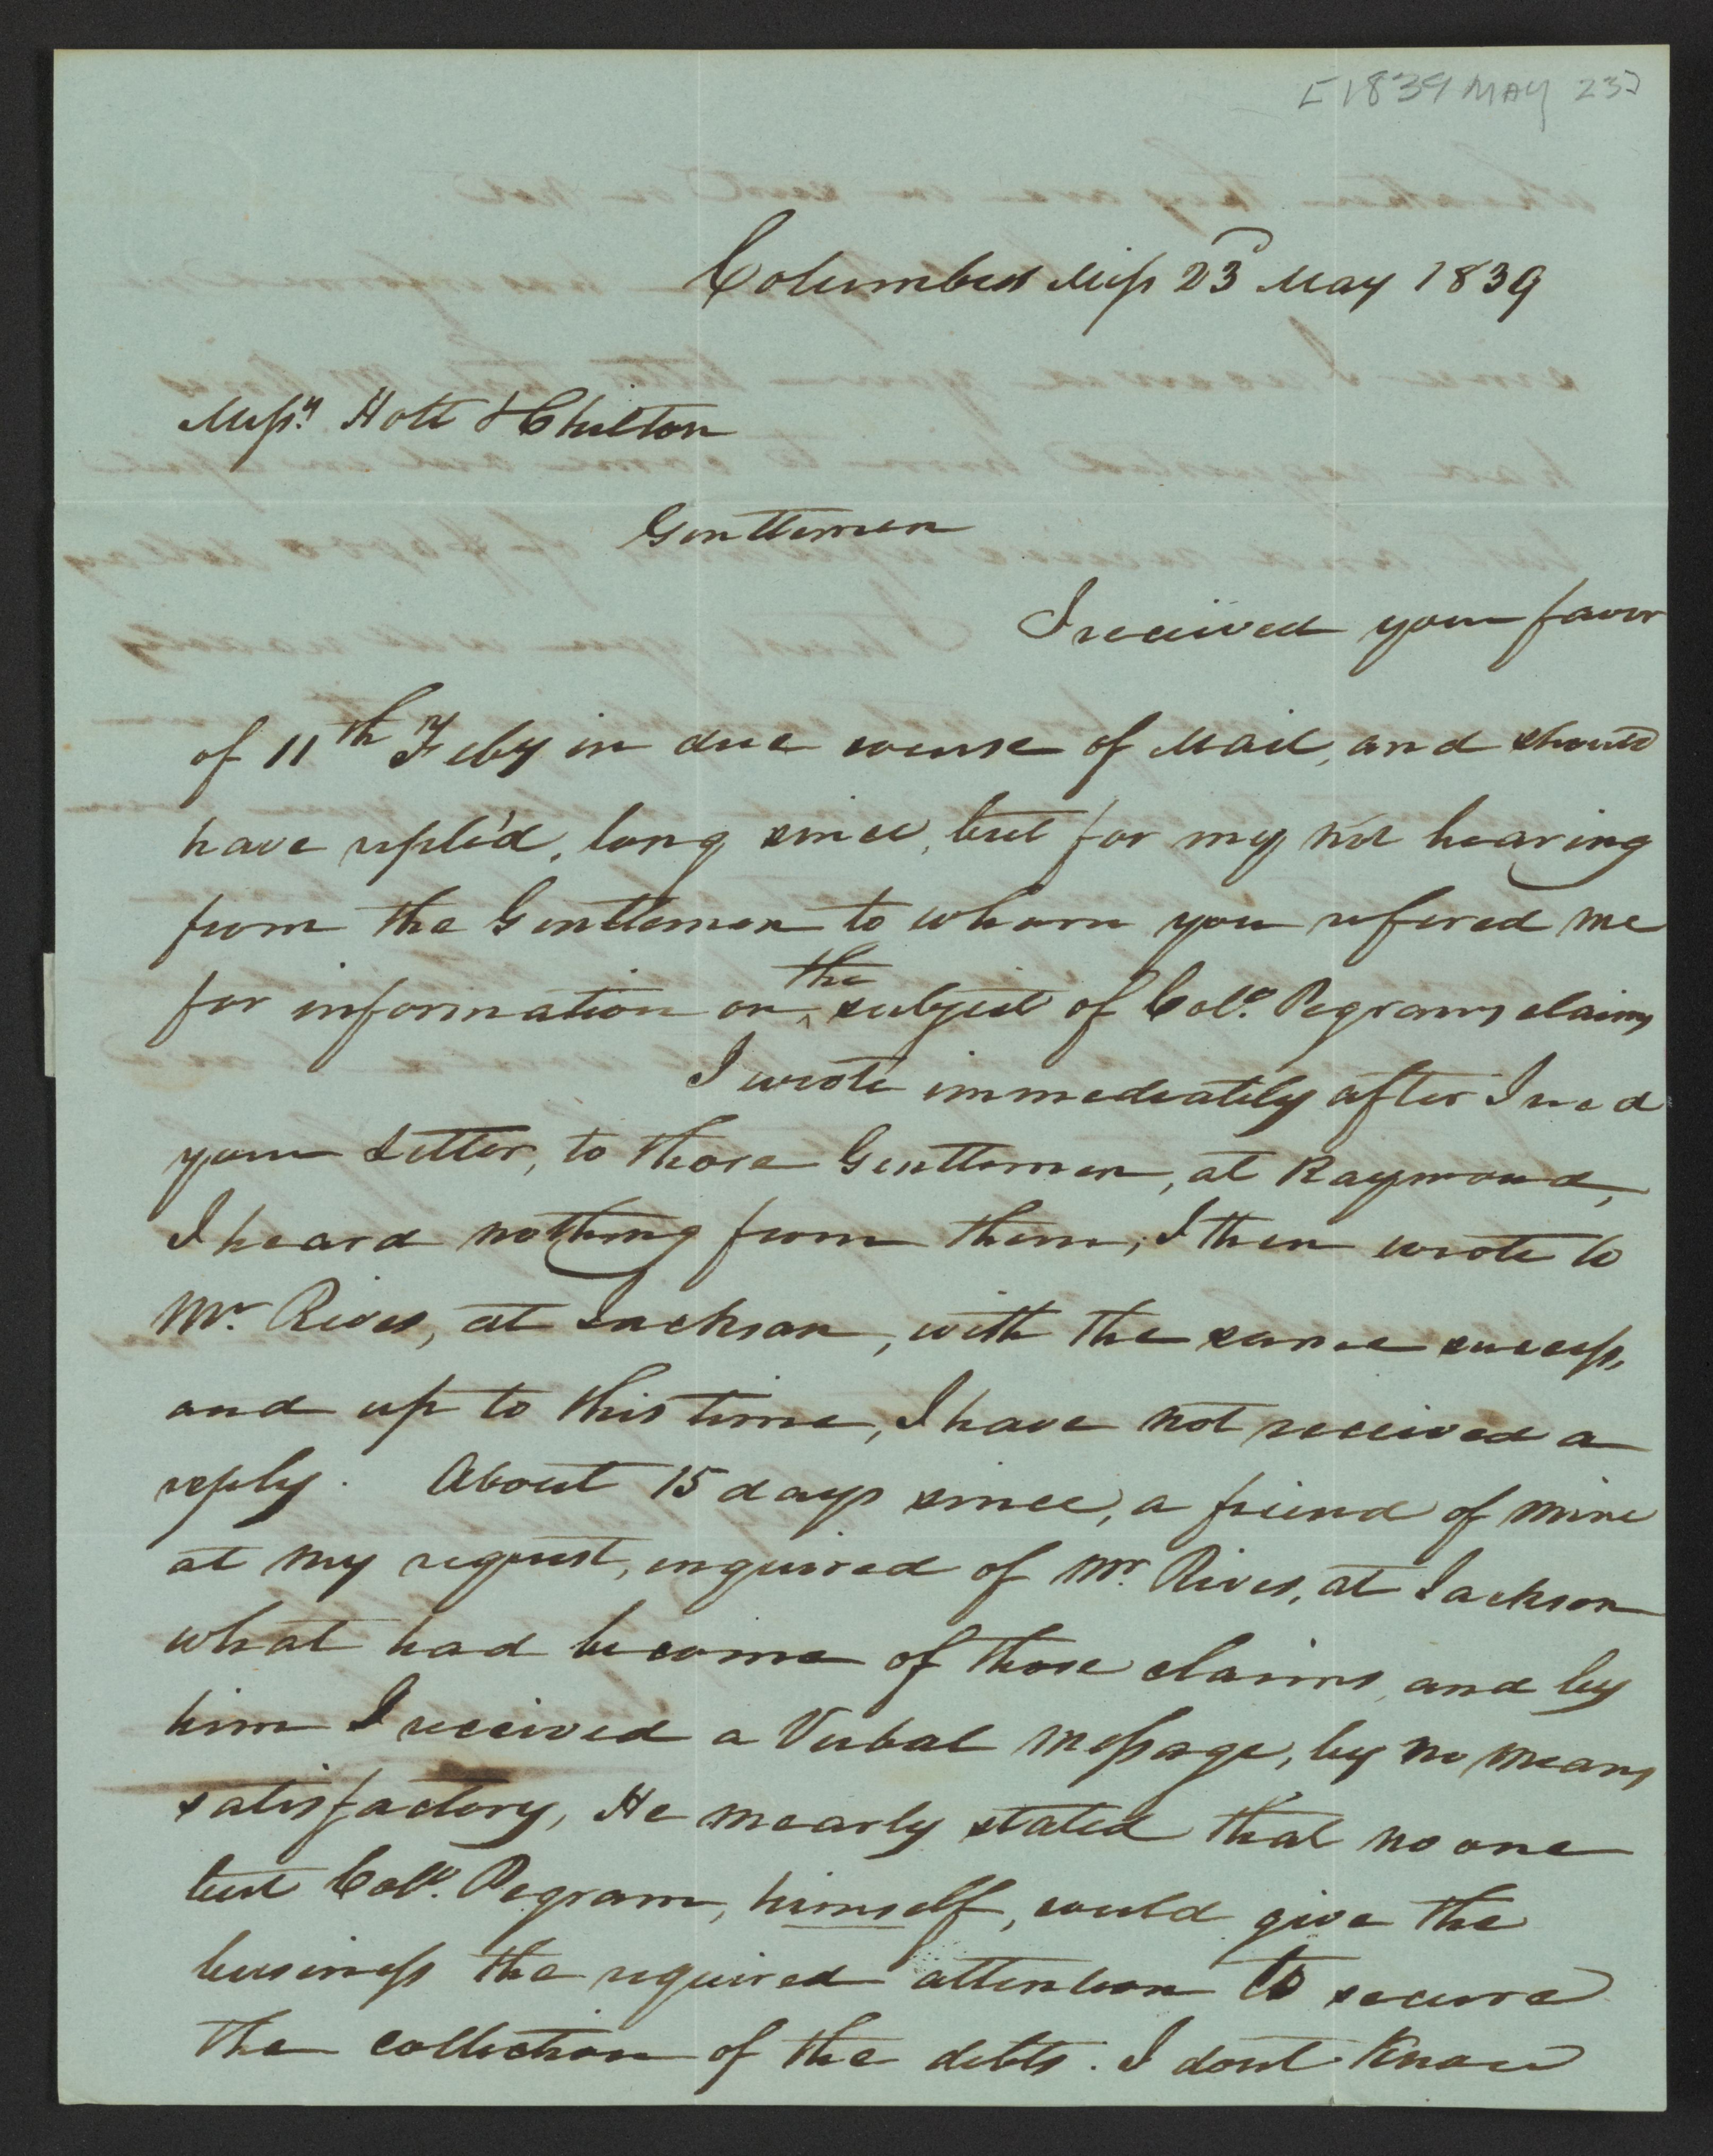 [1839 MAY 23]
Columbus Miss 23d May 1839
Messrs Holt & Chilton
Gentlemen
I received your favor
of 11th Feby in due course of Mail, and should
have repli'd, long since, but for my not hearing
from the Gentlemen to whom you refered me
for information on the subject of Colo. Pegrams claims
I wrote immediatily after I recd
your Letter, to those Gentlemen, at Raymond,
I heard nothing from them, I then wrote to
Mr. Rives, at Jackson, with the same success,
and up to this time, I have not received a
reply. About 15 days since, a friend of mine
at my request, enquired of Mr. Rives, at Jackson
what had become of those claims, and by
him I received a Verbal Message, by no means
satisfactory, He mearly stated that no one
but Colo. Pegram, himself, could give the
business the required attention to secure
the collection of the debts. I dont Know